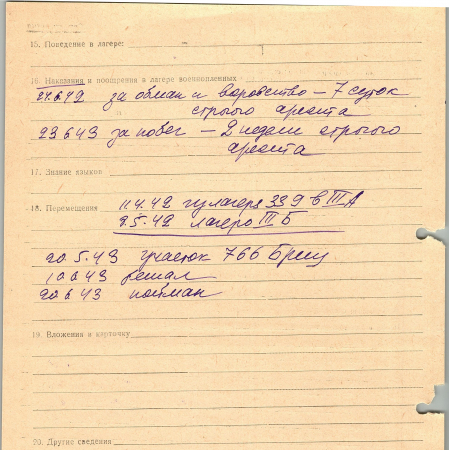 15. Поведение в лагере:
16. Наказания и поощрения в лагере военнопленных
27.6.42 за обман и воровство – 7 суток
строгого ареста
23 6 43 за побег – 2 недели строгого
ареста
17. Знание языков
18. Перемещения 11.4.42 лагеря 339 в III А
25.42 лагерь III Б
20.5.43 участок 766 Бриц
10 6 43 бежал
20 6 43 пойман
19. Вложения в карточку
20. Другие сведения